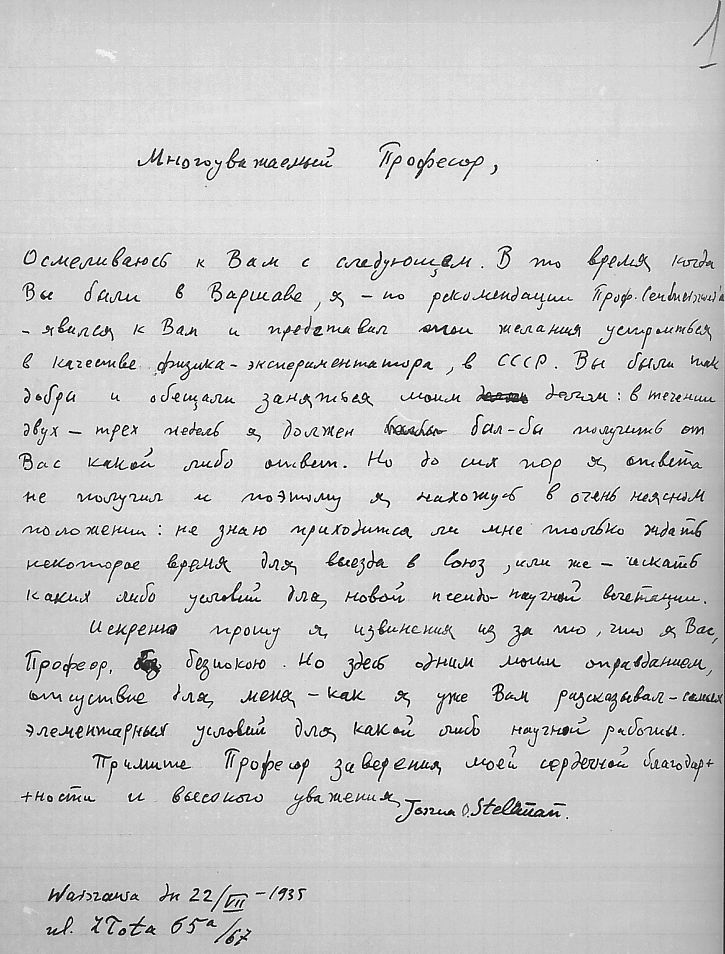 1
Многоуважаемый Професор,
Осмеливаюсь к Вам с следующем. В то время когда
Вы были в Варшаве, я – по рекомендации Проф.
– явился к Вам и представил мои желания устроиться
в качестве физика-экспериментатора, в СССР. Вы были так
добры и обещали заняться моим делом: в течении
двух – трех недель я должен был-бы получить от
Вас какой либо ответ. Но до сих пор я ответа
не получил и поэтому я нахожусь в очень неясном
положении: не знаю приходится ли мне только ждать
некоторое время для выезда в Союз, или же – искать
каких либо условий для новой псевдо-научной вегетации.
Искрено прошу я извинения из за то, что я Вас,
Професор, безпокою. Но здесь одним моим оправданием,
отсуствие для меня – как я уже Вам разсказывал – самых
элементарных условий для какой либо научной работы.
Примите Професор заверения моей сердечной благодар+
+ности и высокого уважения
Stelman.
Warszawa dn 22/VII – 1935
ul. Złota 65a/67